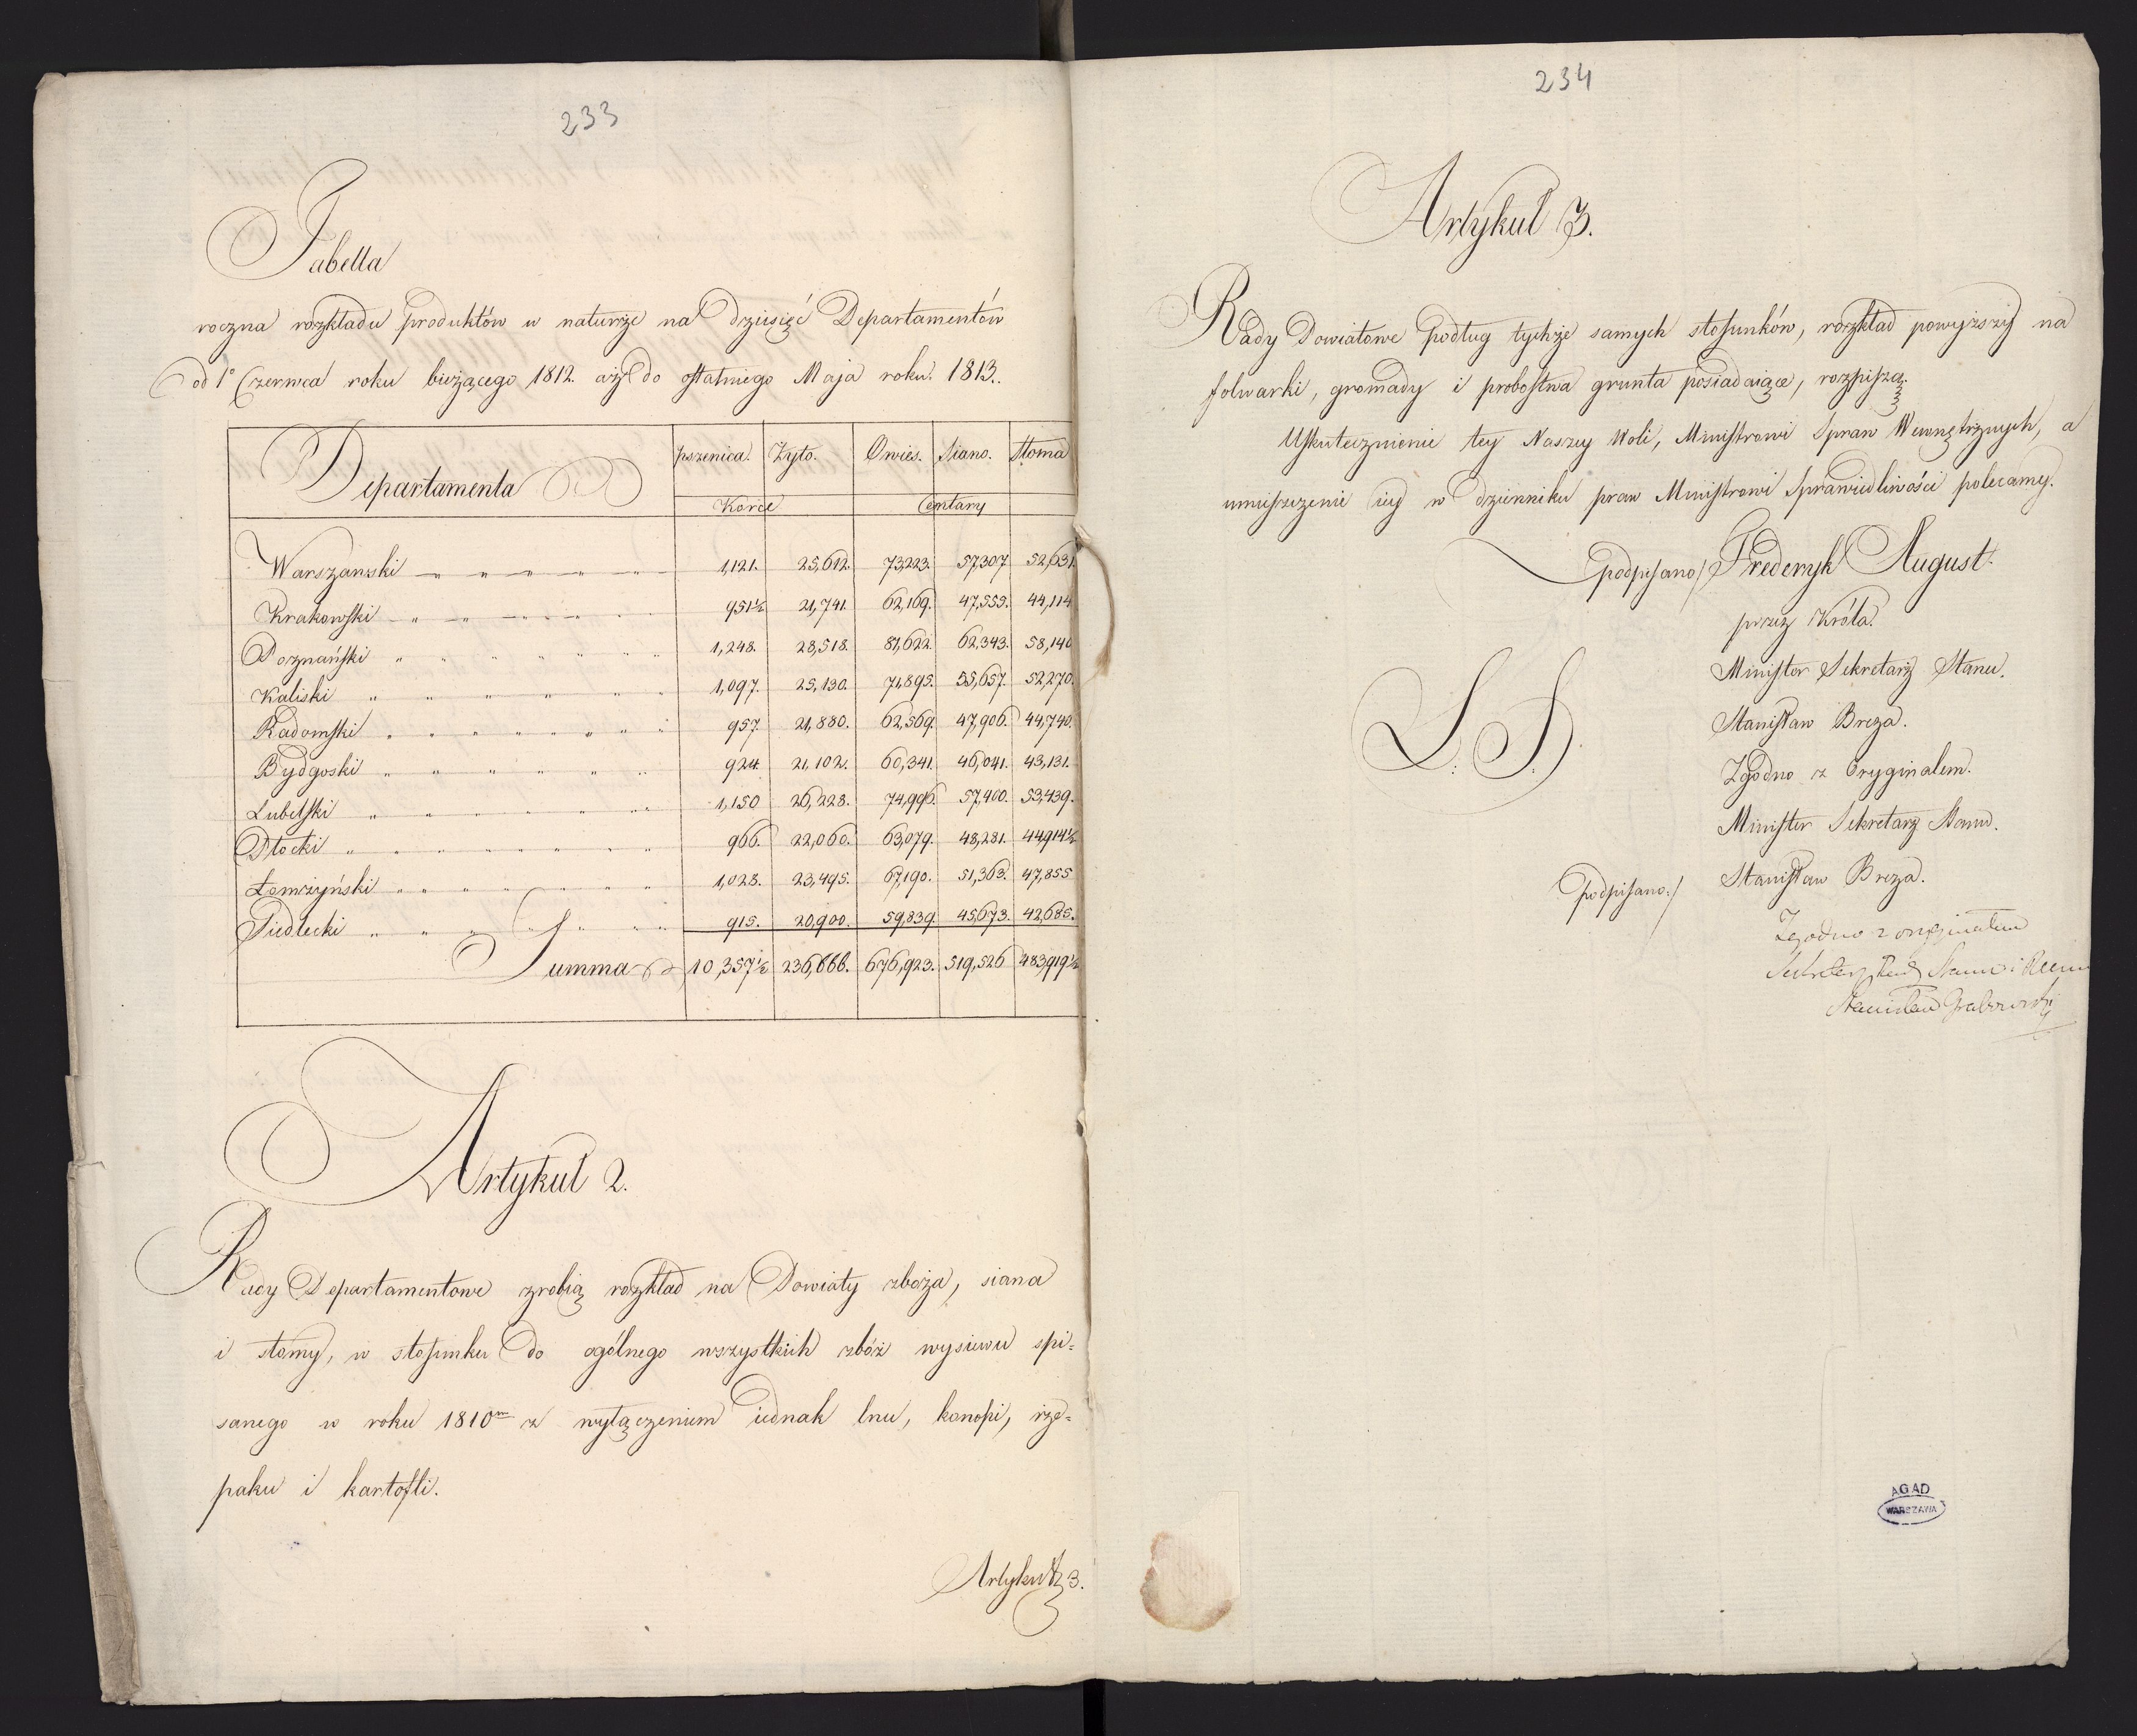 233
Tabella
roczna rozkładu produktów w naturze na dziesięć Departamentów
od 1º Czerwca roku bieżącego 1812. aż do ostatniego Maja roku. 1813.
Departamenta pszenica. Żyto. Owies. Siano. Słoma
Korce Centary
Warszawski 1,121. 25,612. 73,223. 57,307 52,631.
Krakowski 951½ 21,741. 62,169. 47,555. 44,114
Poznański 1,248. 28,518. 81,622. 62,343. 58,140
Kaliski 1,097. 25,130. 71,895. 55,657. 52,270.
Radomski 957. 21,880. 62,569. 47,906. 44,740.
Bydgoski 924. 21,102. 60,341. 46,041. 43,131.
Lubelski 1,150 26,228. 74,996. 57,400. 53,439.
Płocki 966. 22,060. 63,079. 48,281. 44,914½
Łomżyński 1,028. 23,495. 67,190. 51,363. 47,855
Siedlecki 915. 20,900. 59,839. 45,673. 42,685.
Summa 10,357½ 236,666. 676,923. 519,526 483,919½
Artykuł 2.
Rady Departamentowe zrobią rozkład na Powiaty zboża, siana
i słomy, w stosunku do ogólnego wszystkich zbóż wysiewu spi=
sanego w roku 1810m z wyłączeniem iednak lnu, konopi, rze=
paku i kartofli.
Artykuł 3.
234
Artykuł 3.
Rady Powiatowe podług tychże samych stosunków, rozkład powyższy na
folwarki, gromady i probostwa grunta posiadaiące, rozpiszą.
Uskutecznienie tey Naszey Woli, Ministrowi Spraw Wewnętrznych, a
umieszczenie iey w dzienniku praw Ministrowi Sprawiedliwości polecamy.
podpisano/ Frederyk August.
przez Króla.
Minister Sekretarz Stanu.
L: S:
Stanisław Breza.
Zgodno z Oryginałem.
Minister Sekretarz Stanu.
podpisano:/ Stanisław Breza.
Zgodno z oryginałem
Sekretarz Rady Stanu i
Stanisław Grabowski
AGAD
WARSZAWA